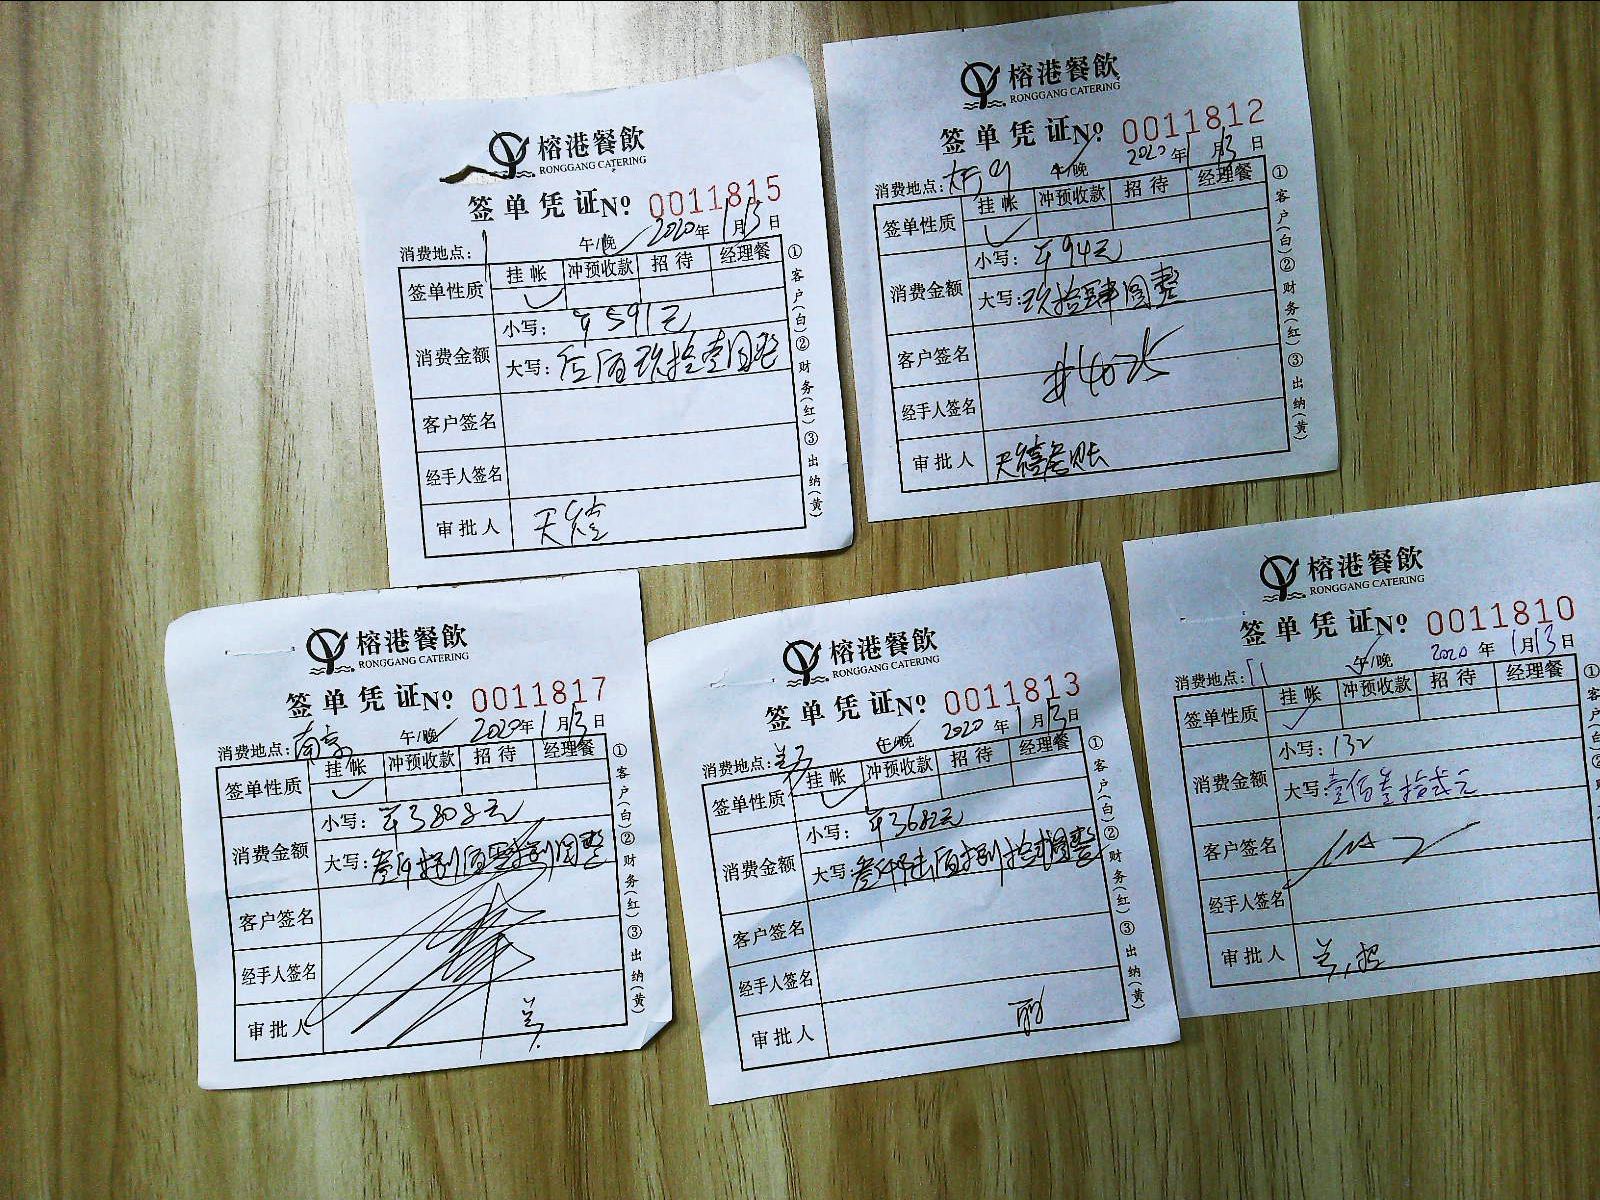 榕港餐飲
RONGGANG CATERING
签单凭证No 0011815
消费地点: 午/晚 2020年1月13日
签单性质 挂帐 冲预收款 招待 经理餐
消费金额 小写: ¥591元
大写: 伍佰玖拾壹圆整
客户签名
经手人签名
审批人
①客户(白)②财务(红)③出纳(黄)
榕港餐飲
RONGGANG CATERING
签单凭证No 0011812
消费地点: 午/晚 2020年1月13日
签单性质 挂帐 冲预收款 招待 经理餐
消费金额 小写: ¥94元
大写: 玖拾肆圆整
客户签名
经手人签名
审批人
①客户(白)②财务(红)③出纳(黄)
榕港餐飲
RONGGANG CATERING
签单凭证No 0011817
消费地点: 南京 午/晚 2020年1月13日
签单性质 挂帐 冲预收款 招待 经理餐
消费金额 小写: ¥3808元
大写: 叁仟捌佰零捌圆整
客户签名
经手人签名
审批人
①客户(白)②财务(红)③出纳(黄)
榕港餐飲
RONGGANG CATERING
签单凭证No 0011813
消费地点: 午/晚 2020年1月13日
签单性质 挂帐 冲预收款 招待 经理餐
消费金额 小写: ¥3682元
大写: 叁仟陆佰捌拾贰圆整
客户签名
经手人签名
审批人
①客户(白)②财务(红)③出纳(黄)
榕港餐飲
RONGGANG CATERING
签单凭证No 0011810
消费地点: 午/晚 2020年1月13日
签单性质 挂帐 冲预收款 招待 经理餐
消费金额 小写: 132
大写: 壹佰叁拾贰元
客户签名
经手人签名
审批人